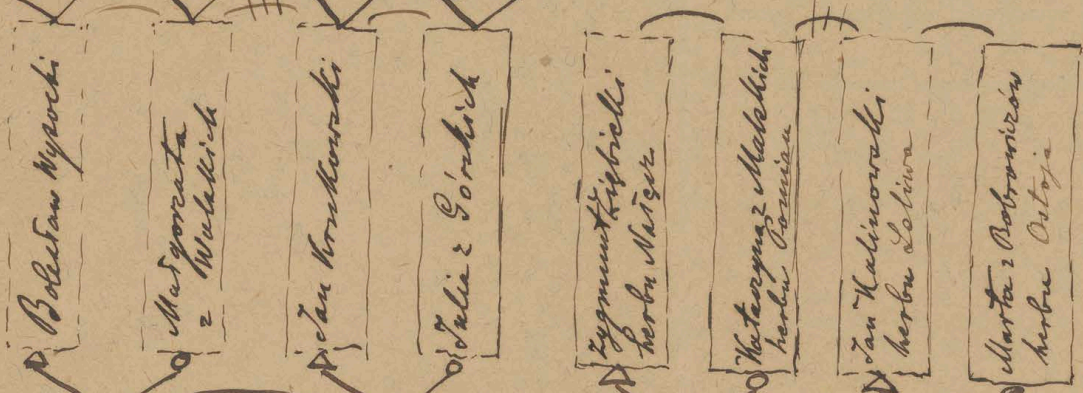 Bolesław Wysocki
Małgorzata
z Wulskich
Jan Kroszkowski
Julia z Górskich
Zygmunt Ziębicki
herbu Nałęcz
Katarzyna z Malskich
herbu Pomian
Jan Kalinowski
herbu Leliwa
Marta z Bobrowiczów
herbu Ostoja